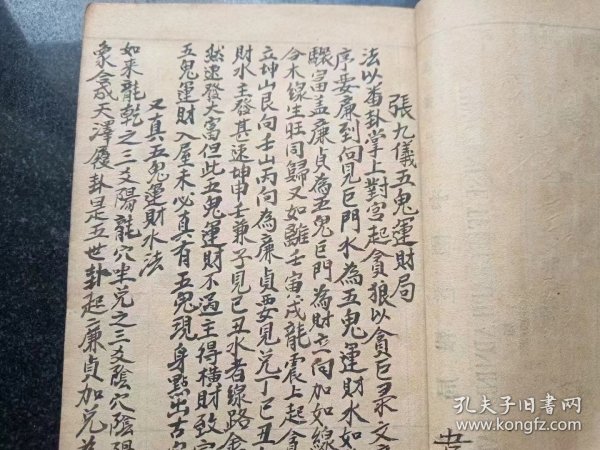 張九儀五鬼運財局
法以番卦掌上對宮起貪狼以貪巨录文
序要廉到向見巨門水為五鬼運財水如
驟富盖廉貞為五鬼巨門為財立向加如線
合木線生旺同歸又如離壬寅戌龍震上起貪
立坤山艮向壬山丙向為廉貞要見兑丁巳丑
財水主發甚速坤申壬兼子見已丑水者線路金
然速發大富但此五鬼運財不過主得橫財致
五鬼運財入屋未必真有五鬼現身點出古
又真五鬼運財水法
如来龍乾之三爻陽龍穴坐兑之三爻陰穴陰陽
象合成天澤履卦是五世卦起廉貞加兑
孔夫子旧書网
www.kongfz.com